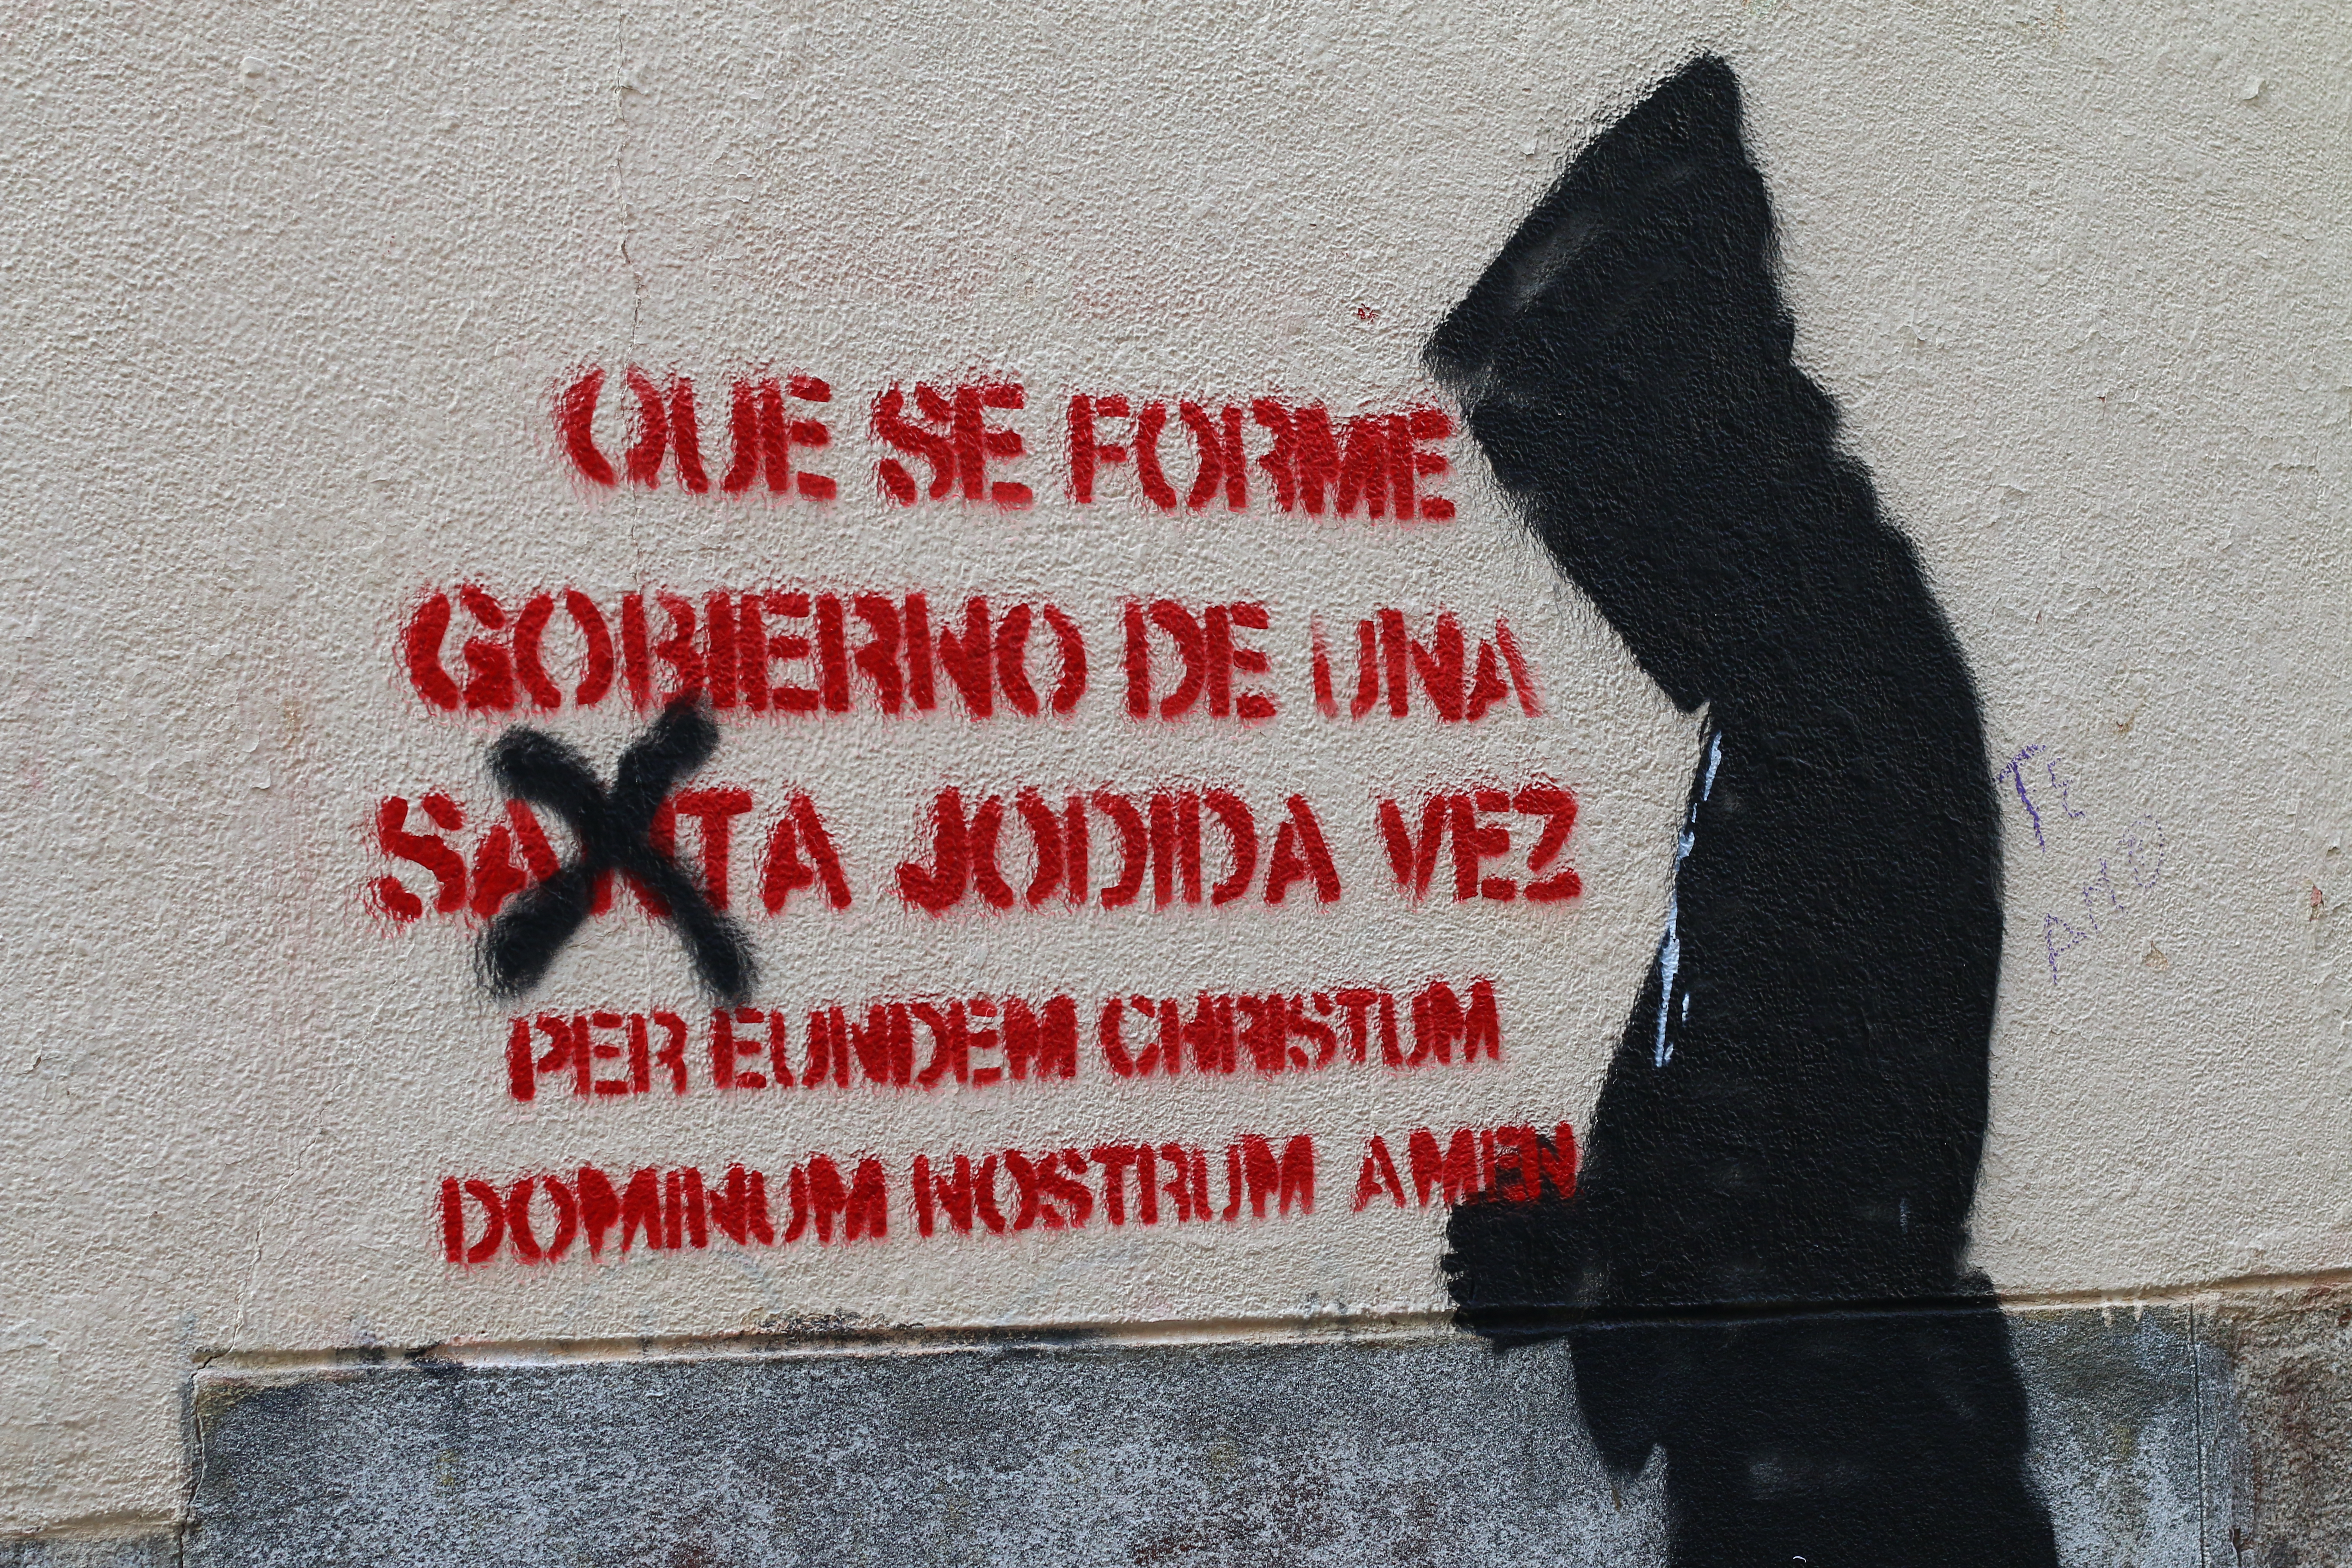 QUE SE FORME
GOBIERNO DE UNA
SANTA JODIDA VEZ
PER EUNDEM CHRISTUM
DOMINUM NOSTRUM AMEN
TE
AMO